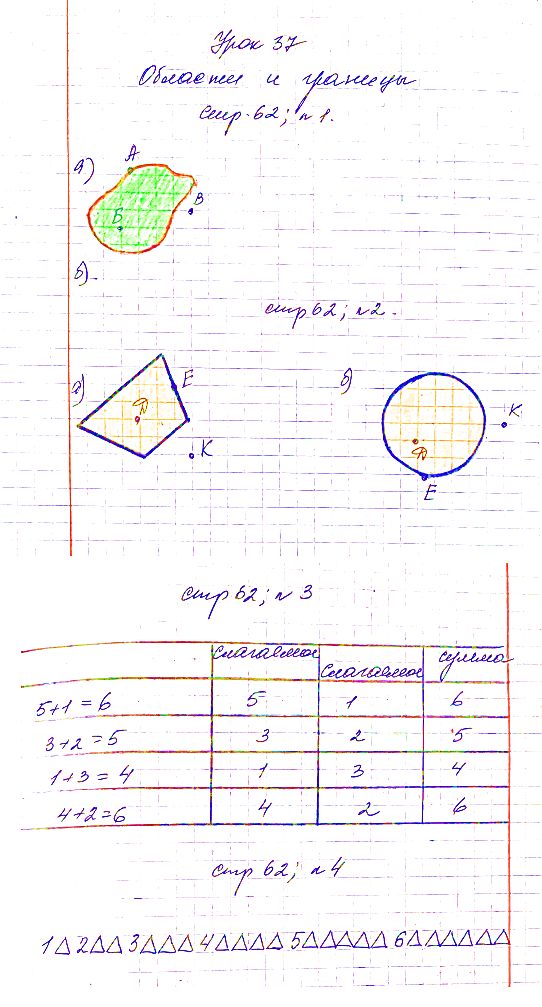 Урок 37
Области и границы
стр. 62; n 1.
а)
А
В
Б
б)
стр 62; n 2.
а)
Е
Д
К
б)
К
Д
Е
стр 62; n 3
слагаемое слагаемое сумма
5+1=6 5 1 6
3+2=5 3 2 5
1+3=4 1 3 4
4+2=6 4 2 6
стр 62; n 4
1△ 2△△ 3△△△ 4△△△△ 5△△△△△ 6△△△△△△